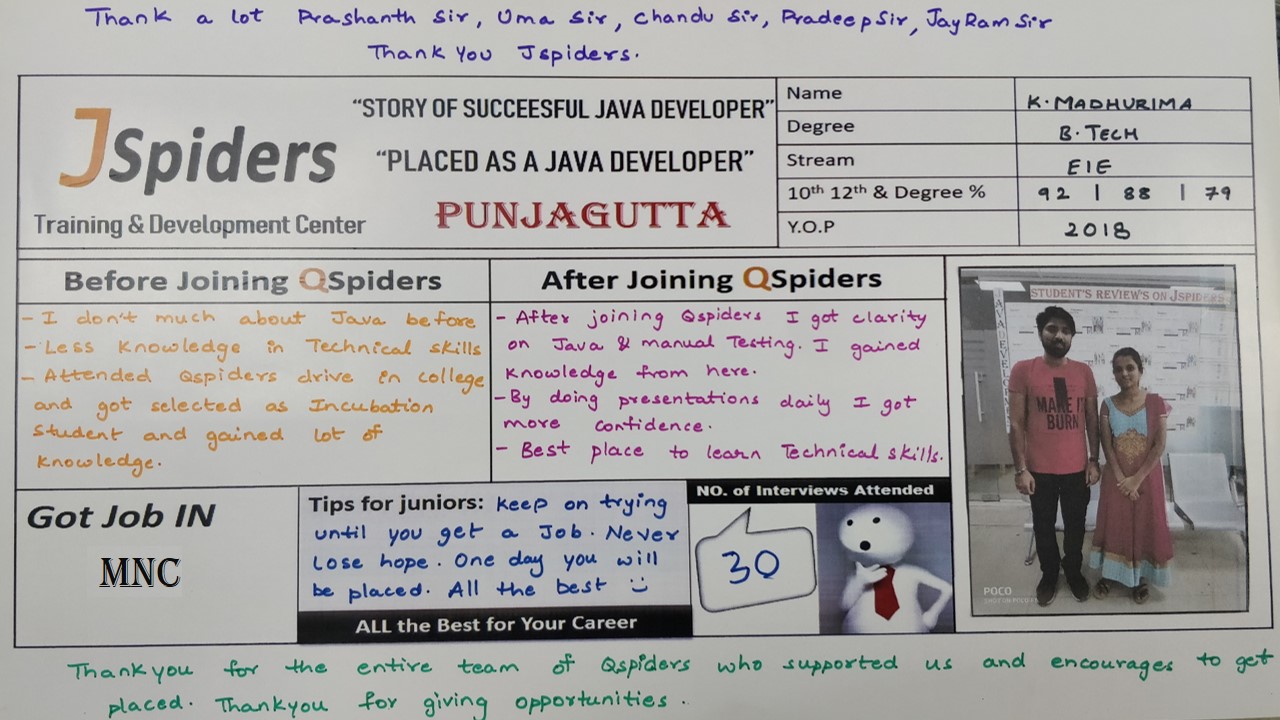 Thank a lot Prashanth Sir, Uma Sir, Chandu Sir, Pradeep Sir, JayRam Sir
Thank You Jspiders.
JSpiders
Training & Development Center
“STORY OF SUCCEESFUL JAVA DEVELOPER”
“PLACED AS A JAVA DEVELOPER”
PUNJAGUTTA
Name K. MADHURIMA
Degree B. TECH
Stream EIE
10th 12th & Degree % 92 | 88 | 79
Y.O.P 2018
Before Joining QSpiders
- I don't much about Java before
- Less Knowledge in Technical skills
- Attended Qspiders drive in college
and got selected as Incubation
Student and gained lot of
Knowledge.
After Joining QSpiders
- After joining Qspiders I got clarity
on Java & manual Testing. I gained
Knowledge from here.
- By doing presentations daily I got
more confidence.
- Best place to learn Technical skills.
STUDENT'S REVIEW'S ON JSPIDERS
JAVA DEVELOPER
MAKE IT
BURN
POCO
Got Job IN
MNC
Tips for juniors: Keep on trying
until you get a Job. Never
Lose hope. One day you will
be placed. All the best
ALL the Best for Your Career
NO. of Interviews Attended
30
Thankyou for the entire team of Qspiders who supported us and encourages to get
placed. Thankyou for giving opportunities.